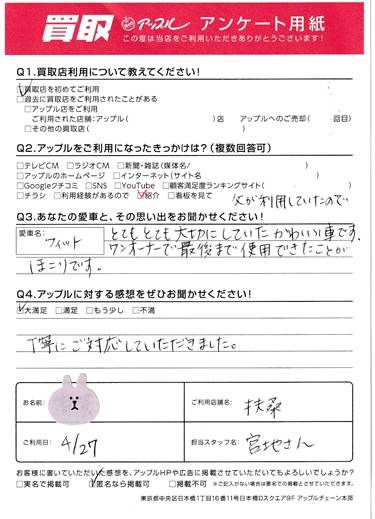 買取 アップル アンケート用紙
この度は当店をご利用いただきありがとうございます!
Q1.買取店利用について教えてください!
☑買取店を初めてご利用
□過去に買取店をご利用されたことがある
□アップル店をご利用
ご利用された店舗:アップル( )店 アップルへのご売却( 回目)
□その他の買取店( )
Q2.アップルをご利用になったきっかけは?(複数回答可)
□テレビCM □ラジオCM □新聞・雑誌(媒体名/ )
□アップルのホームページ □インターネット(サイト名 )
□Googleクチコミ □SNS □YouTube □顧客満足度ランキングサイト( )
□チラシ □利用経験があるので ☑紹介 □看板を見て
父が利用していたので
Q3.あなたの愛車と、その思い出をお聞かせください!
愛車名: フィット
とてもとても大切にしていたかわいい車です。
ワンオーナーで最後まで使用できたことが
ほこりです。
Q4.アップルに対する感想をぜひお聞かせください!
☑大満足 □満足 □もう少し □不満
丁寧にご対応していただきました。
お名前: ご利用店舗名: 扶桑
ご利用日: 4/27 担当スタッフ名: 宮地さん
お客様に書いていただいた感想を、アップルHPや広告に掲載させていただいてもよろしいでしょうか?
□実名で掲載可 ☑匿名なら掲載可 □掲載不可 ※ご記入がない場合は匿名での掲載とさせていただきます。
東京都中央区日本橋1丁目16番11号日本橋Dスクエア9F アップルチェーン本部